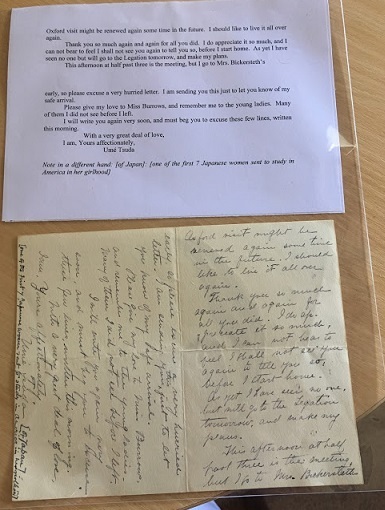 Oxford visit might be renewed again some time in the future. I should like to live it all over
again.
Thank you so much again and again for all you did. I do appreciate it so much, and I
can not bear to feel I shall not see you again to tell you so, before I start home. As yet I have
seen no one but will go to the Legation tomorrow, and make my plans.
This afternoon at half past three is the meeting, but I go to Mrs. Bickersteth's
early, so please excuse a very hurried letter. I am sending you this just to let you know of my
safe arrival.
Please give my love to Miss Burrows, and remember me to the young ladies. Many
of them I did not see before I left.
I will write you again very soon, and must beg you to excuse these few lines, written
this morning.
With a very great deal of love,
I am, Yours affectionately,
Umé Tsuda
Note in a different hand: [of Japan] [one of the first 7 Japanese women sent to study in
America in her girlhood]
Oxford visit might be
renewed again some time
in the future. I should
like to live it all over
again.
Thank you so much
again and again for
all you did. I do ap-
preciate it so much,
and I can not bear to
feel I shall not see you
again to tell you so,
before I start home.
As yet I have seen no one,
but will go to the Legation
tomorrow, and make my
plans.
This afternoon at half
past three is the meeting,
but I go to Mrs. Bickersteth's
early, so please excuse a very hurried
letter. I am sending you this just to let
you know of my safe arrival.
Please give my love to Miss Burrows,
and remember me to the young ladies.
Many of them I did not see before I left.
I will write you again very
soon, and must beg you to excuse
these few lines, written this morning.
With a very great deal of love,
I am, Yours affectionately,
Umé Tsuda [of Japan]
[one of the first 7 Japanese women sent to study in America in her girlhood]